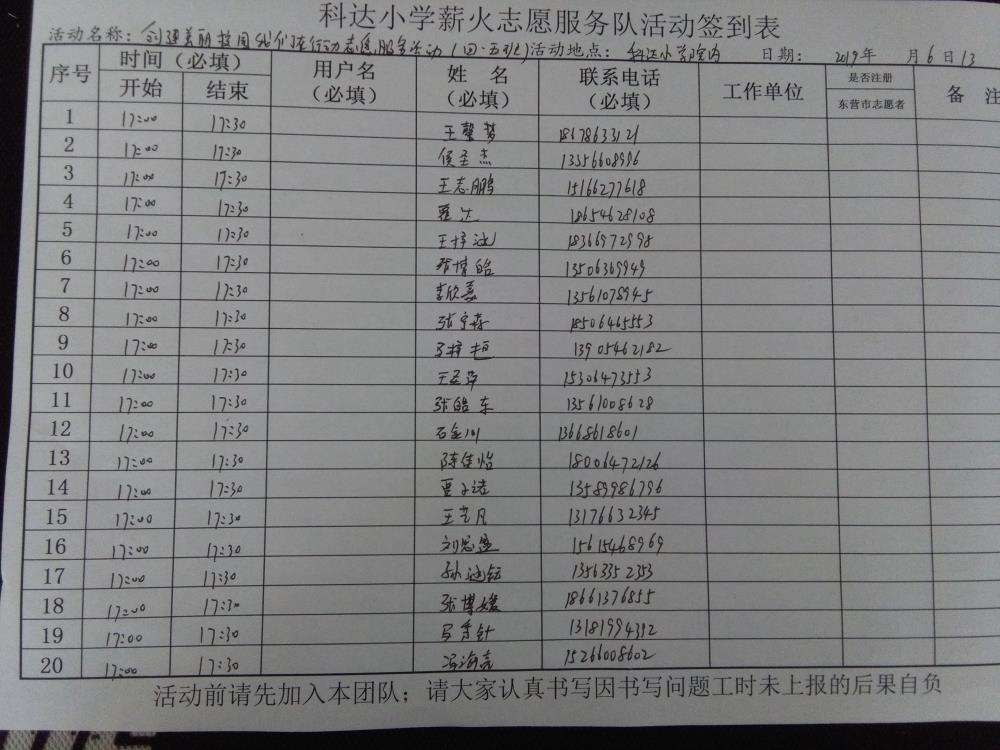 科达小学薪火志愿服务队活动签到表
活动名称：创建美丽校园我们在行动志愿服务活动（四·五班）活动地点：科达小学院内 日期：2019年 月6日13
序号 时间（必填） 用户名（必填） 姓 名（必填） 联系电话（必填） 工作单位 是否注册 东营市志愿者 备 注
开始 结束
1 17:00 17:30 王馨梦 18178633121
2 17:00 17:30 侯圣杰 13356608996
3 17:00 17:30 王志鹏 15166277618
4 17:00 17:30 达 18654628108
5 17:00 17:30 王梓涵 18366972998
6 17:00 17:30 张博皓 13506369949
7 17:00 17:30 李欣嘉 13561078945
8 17:00 17:30 张宇森 18506465553
9 17:00 17:30 13905462182
10 17:00 17:30 王圣 15306473553
11 17:00 17:30 张皓东 13561008628
12 17:00 17:30 石金川 13668618601
13 17:00 17:30 陈佳怡 18006472126
14 17:00 17:30 贾子诺 13589986796
15 17:00 17:30 王艺凡 13176632345
16 17:00 17:30 刘思盈 15615468969
17 17:00 17:30 孙涵钰 13563352353
18 17:00 17:30 张博媛 18661376855
19 17:00 17:30 13181994312
20 17:00 17:30 冯海亮 15266008602
活动前请先加入本团队；请大家认真书写因书写问题工时未上报的后果自负